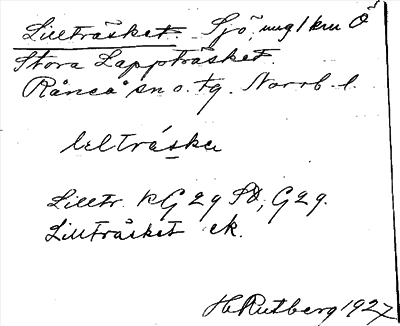 Lillträsket. Sjö, ung 1 km Ö
Stora Lappträsket.
Råneå sn o. tg. Norrb. l.
lılträska
Lilltr. KG 29 SÖ, G29.
Lillträsket ek.
H Rutberg 1927